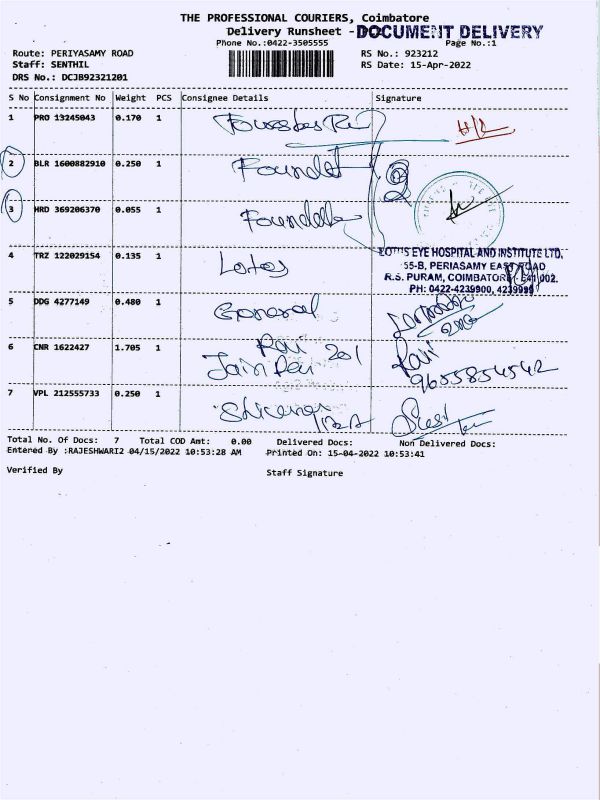 THE PROFESSIONAL COURIERS, Coimbatore
Delivery Runsheet - DOCUMENT DELIVERY
Phone No.:0422-3505555 Page No.:1
Route: PERIYASAMY ROAD RS No.: 923212
Staff: SENTHIL RS Date: 15-Apr-2022
DRS No.: DCJB92321201
S No Consignment No Weight PCS Consignee Details Signature
1 PRO 13245043 0.170 1
2 BLR 1600882910 0.250 1
3 HRD 369206370 0.055 1
4 TRZ 122029154 0.135 1 Lotos
LOTUS EYE HOSPITAL AND INSTITUTE LTD,
55-B, PERIASAMY EAST ROAD
R.S. PURAM, COIMBATORE - 641 002.
PH: 0422-4239900, 4239999
5 DDG 4277149 0.480 1 General
6 CNR 1622427 1.705 1 201 Ravi
9655854542
7 VPL 212555733 0.250 1
Total No. Of Docs: 7 Total COD Amt: 0.00 Delivered Docs: Non Delivered Docs:
Entered By :RAJESHWARI2 04/15/2022 10:53:28 AM Printed On: 15-04-2022 10:53:41
Verified By Staff Signature